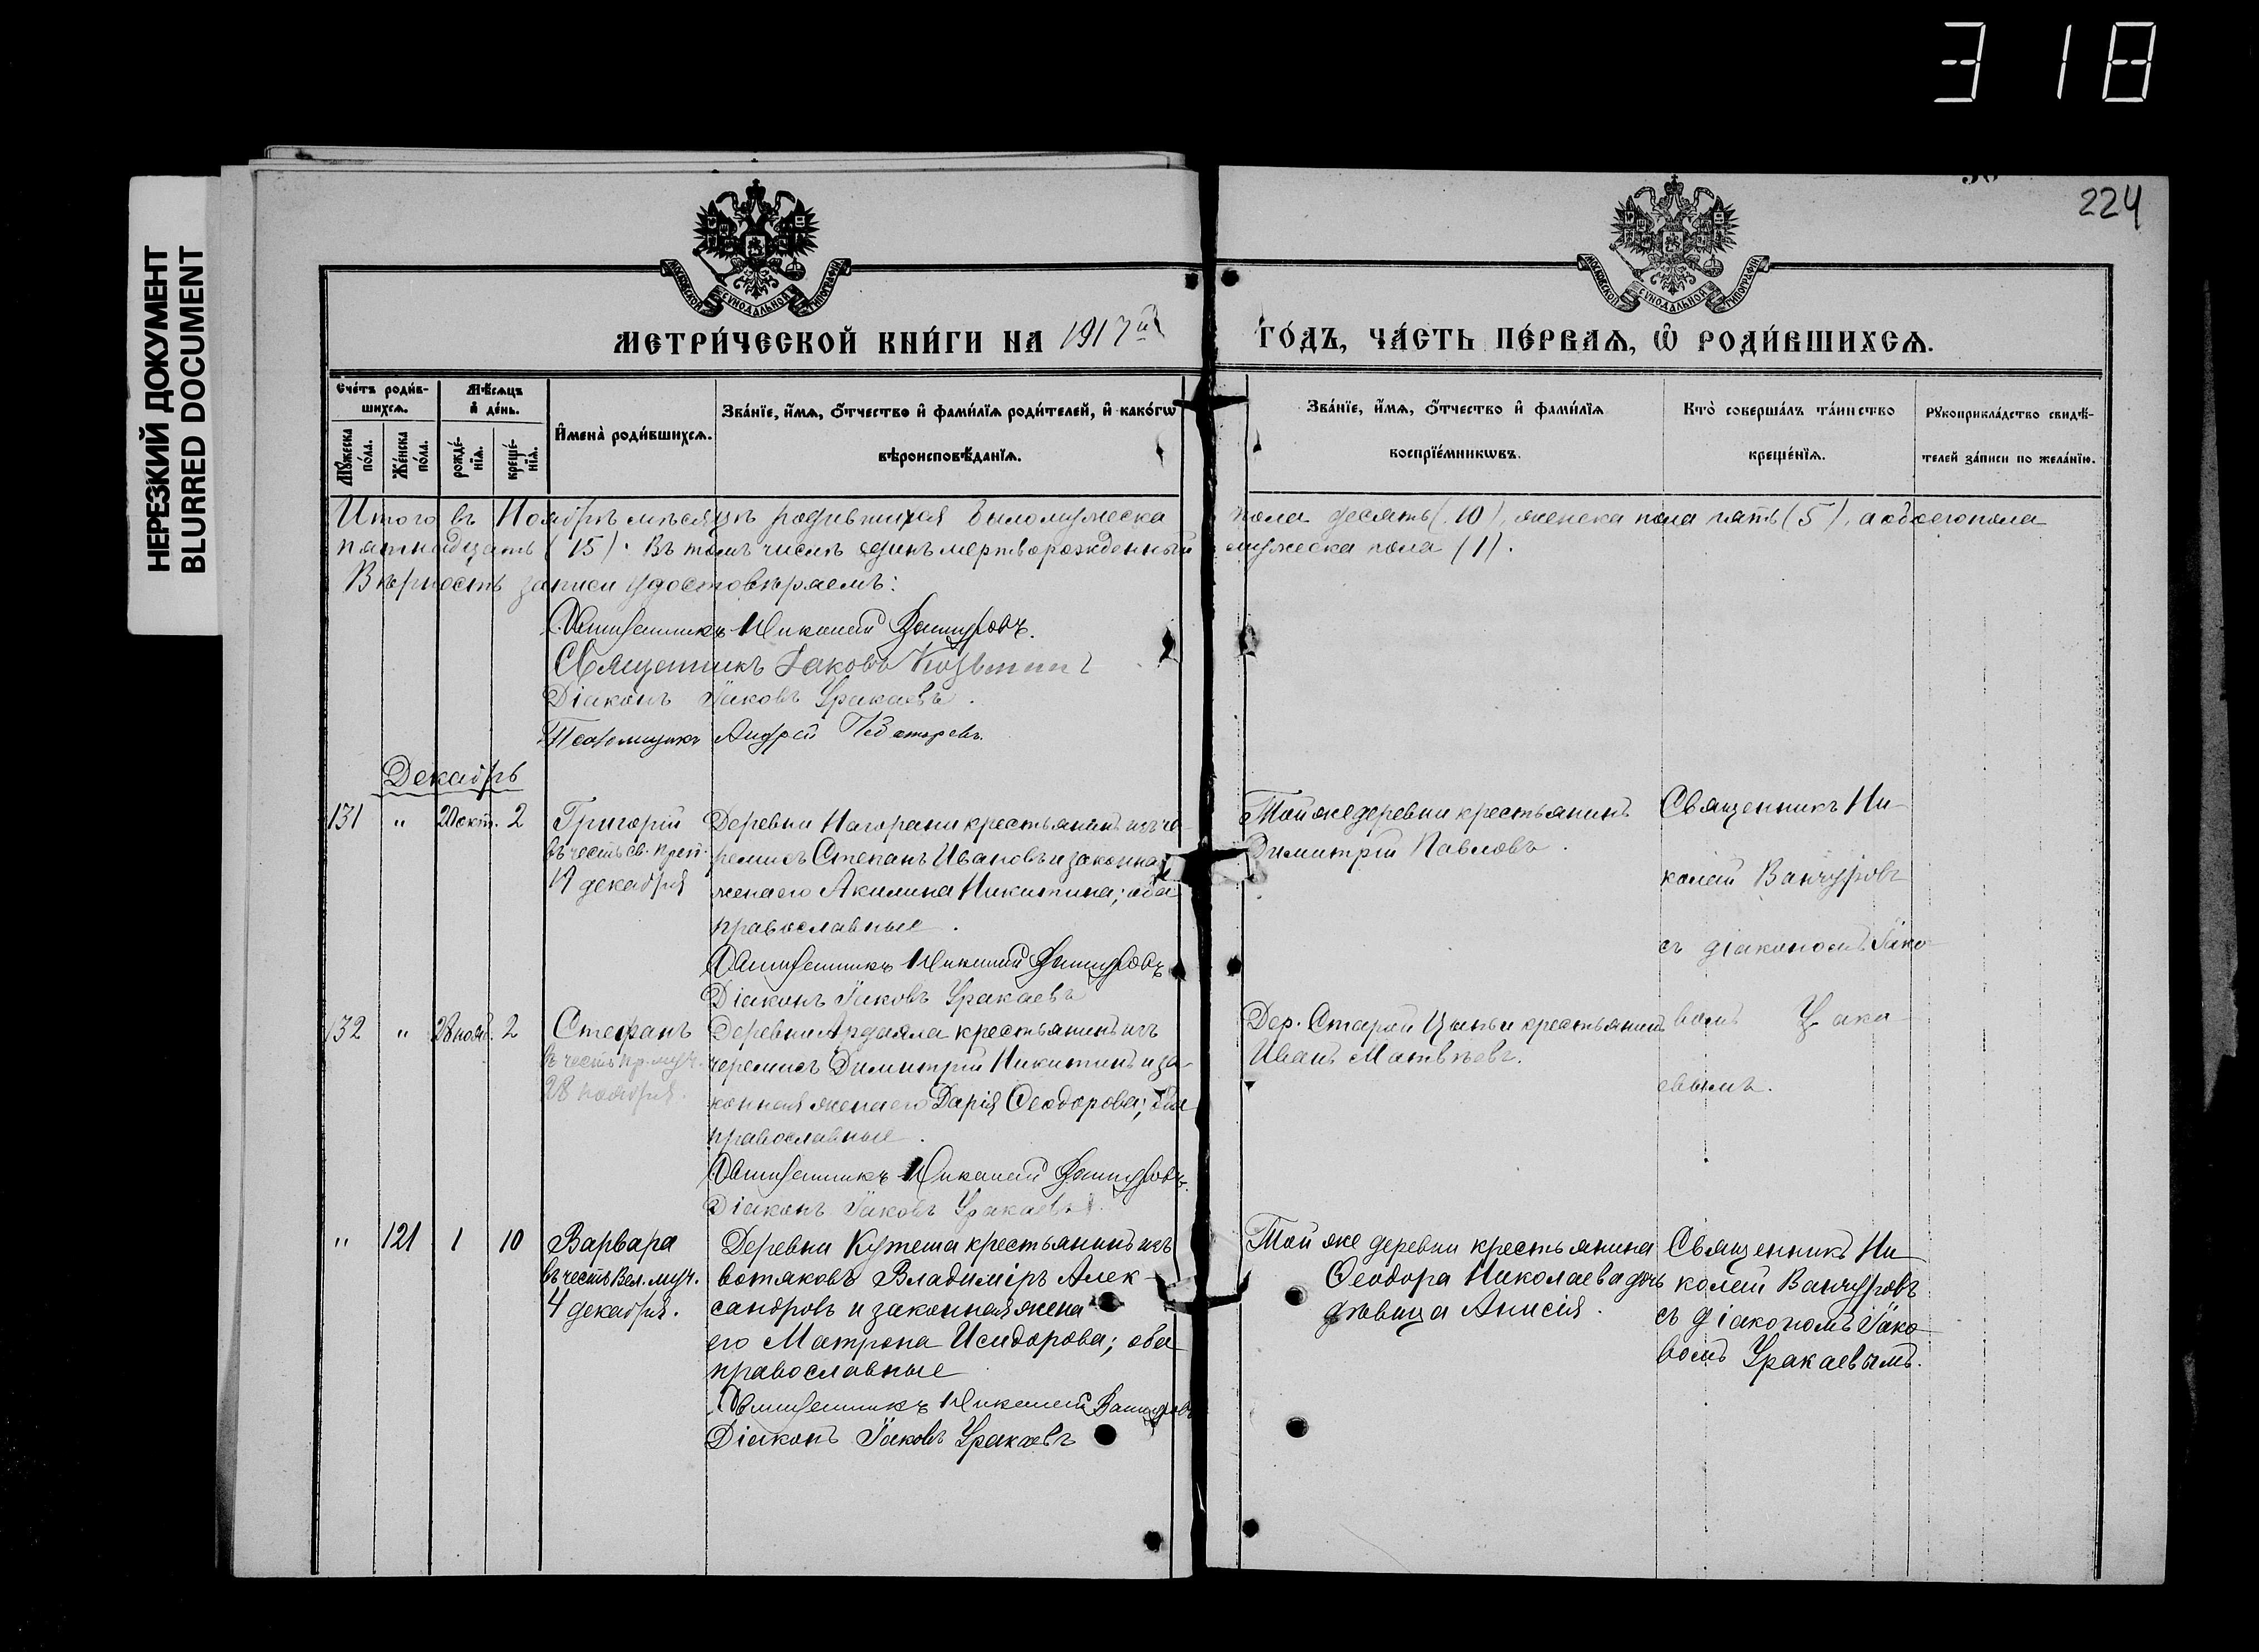 318
НЕРЕЗКИЙ ДОКУМЕНТ
BLURRED DOCUMENT
224
МОСКОВСКОЙ СУНОДАЛЬНОЙ ТИПОГРАФІИ
МОСКОВСКОЙ СУНОДАЛЬНОЙ ТИПОГРАФІИ
МЕТРИ́ЧЕСКОЙ КНИ́ГИ НА 1917й ГО́ДЪ, ЧА́СТЬ ПЕ́РВАѦ, Ѡ РОДИ́ВШИХСѦ.
Счéтъ роди́в-
шихсѧ.
Мѣ́сѧцъ
и҆ дéнь.
Мꙋ́жеска
по́ла.
Жéнска
по́ла.
рождé-
нїѧ.
крещé-
нїѧ.
И҆мена̀ роди́вшихсѧ.
Звáнїе, и҆́мѧ, ѻ҆́тчество и҆ фами́лїѧ роди́телей, и҆ како́гѡ
вѣроисповѣ́данїѧ.
Звáнїе, и҆́мѧ, ѻ҆́тчество и҆ фами́лїѧ
воспрїéмникѡвъ.
Кто̀ совершáлъ тáинство
крещéнїѧ.
Рꙋкоприклáдство свидѣ́-
телей зáписи по желáнїю.
Итого въ Ноябрѣ мѣсяцѣ родившихся было мужеска пола десять (10), женска пола пять (5), а обоего пола
пятнадцать (15). Въ томъ числѣ одинъ мертворожденный мужеска пола (1).
Вѣрность записи удостовѣряемъ:
Священникъ Николай Ванчуровъ.
Священникъ Іаковъ Козьмин
Діаконъ Іаковъ Уракаевъ.
Псаломщикъ Андрей
Декабрь
131 " 20 окт. 2 Григорій
въ честь св. преп.
Деревни Нагорани крестьянинъ изъ че-
ремисъ Степанъ Ивановъ и законная
жена его Акилина Никитина; оба
православные.
Священникъ Николай Ванчуровъ
Діаконъ Іаковъ Уракаевъ
Той же деревни крестьянинъ
Димитрій Павловъ.
Священникъ Ни-
колай Ванчуровъ
съ діакономъ Іако-
вомъ Урака-
евымъ.
132 " 28 нояб. 2 Стефанъ
въ честь пр. муч.
28 ноября.
Деревни Ардаяла крестьянинъ изъ
черемисъ Димитрій Никитинъ и за-
конная жена его Дарія Ѳеодорова; оба
православные.
Священникъ Николай Ванчуровъ.
Діаконъ Іаковъ Уракаевъ.
Дер. Старой крестьянинъ
Иванъ Матвѣевъ.
" 121 1 10 Варвара
въ честь Вел. муч.
4 декабря.
Деревни Кутеша крестьянинъ изъ
вотяковъ Владиміръ Алек-
сандровъ и законная жена
его Матрона Исидорова; оба
православные
Священникъ Николай Ванчуровъ
Діаконъ Іаковъ Уракаевъ
Той же деревни крестьянина
Ѳеодора Николаева дочь
дѣвица Анисія.
Священникъ Ни-
колай Ванчуровъ
съ діакономъ Іако-
вомъ Уракаевымъ.